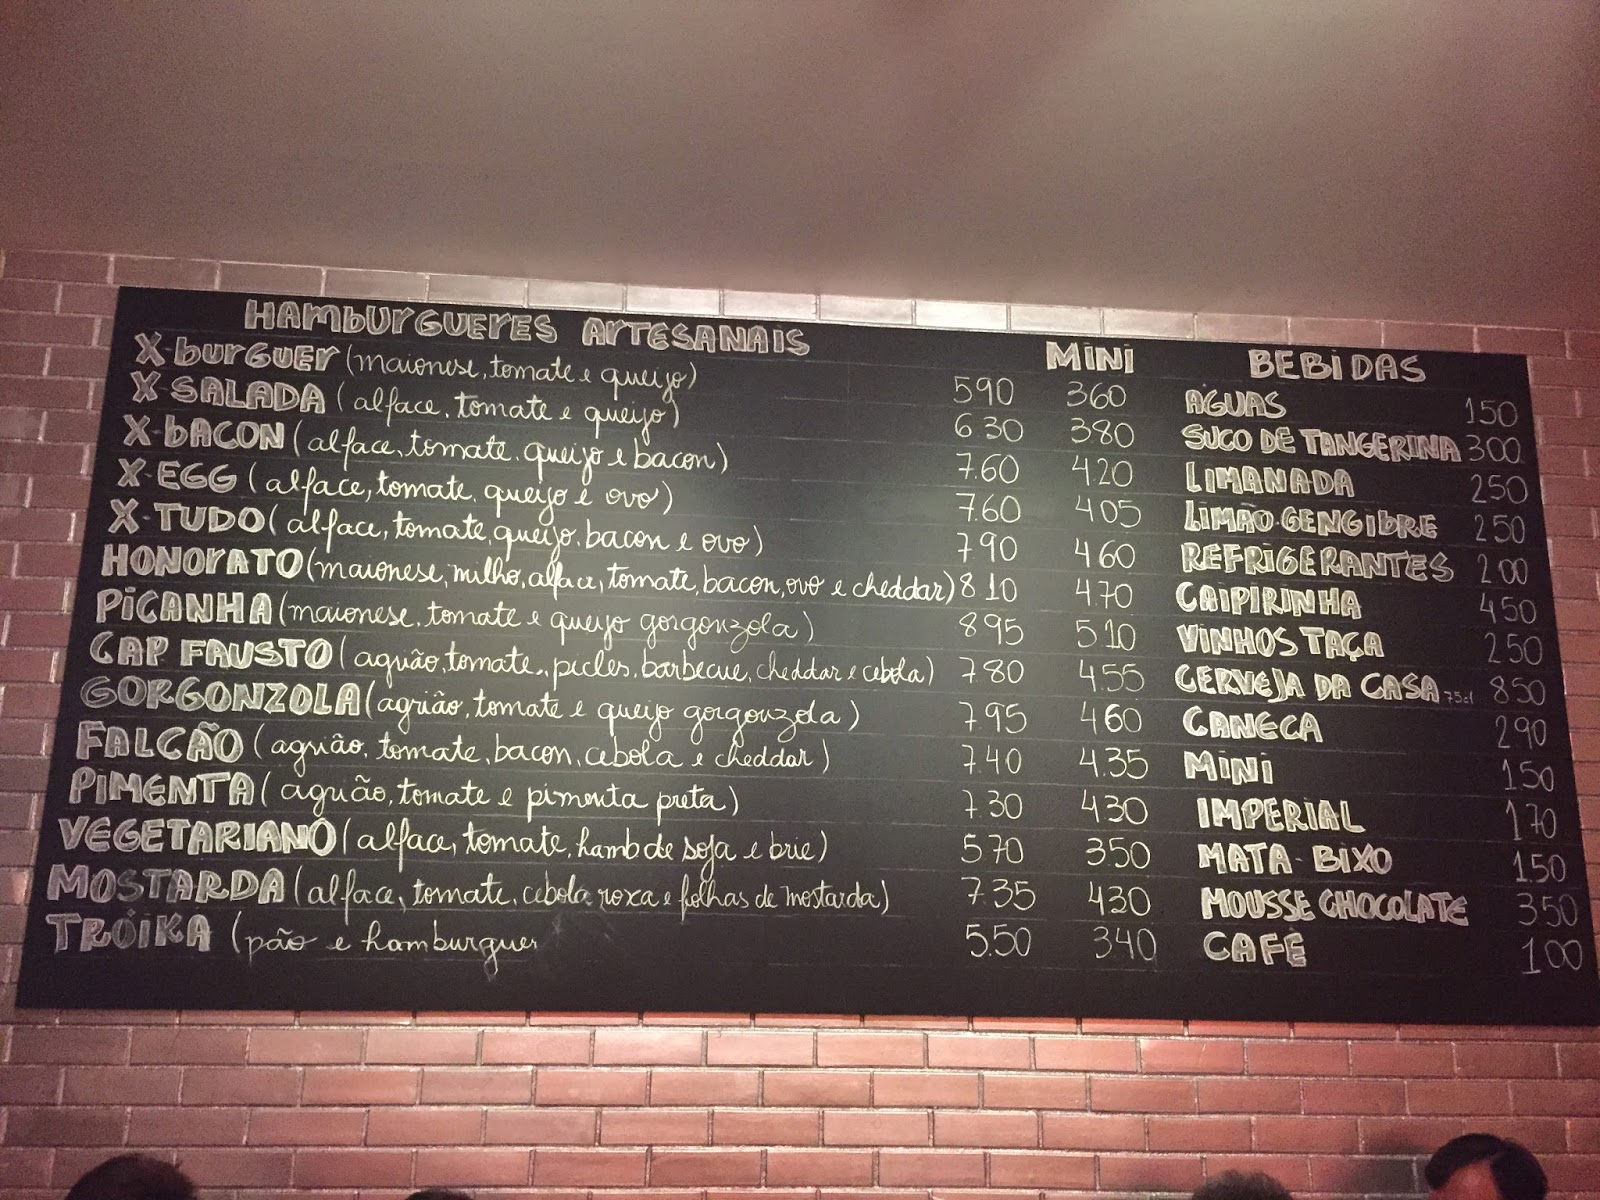 HAMBURGUERES ARTESANAIS MINI
X-BURGUER (maionese, tomate e queijo) 590 360
X-SALADA (alface, tomate e queijo) 630 380
X-BACON (alface, tomate, queijo e bacon) 7.60 4.20
X-EGG (alface, tomate, queijo e ovo) 7.60 405
X-TUDO (alface, tomate, queijo, bacon e ovo) 790 460
HONORATO (maionese, milho, alface, tomate, bacon, ovo e cheddar) 810 4.70
PICANHA (maionese, tomate e queijo gorgonzola) 895 510
CAP FAUSTO (agrião, tomate, picles, barbecue, cheddar e cebola) 780 4.55
GORGONZOLA (agrião, tomate e queijo gorgonzola) 7.95 460
FALCÃO (agrião, tomate, bacon, cebola e cheddar) 7.40 4.35
PIMENTA (agrião, tomate e pimenta preta) 730 430
VEGETARIANO (alface, tomate, hamb de soja e brie) 570 350
MOSTARDA (alface, tomate, cebola roxa e folhas de mostarda) 7.35 430
TRÓIKA (pão e hamburguer 5.50 340
BEBIDAS
ÁGUAS 150
SUCO DE TANGERINA 300
LIMANADA 250
LIMÃO-GENGIBRE 250
REFRIGERANTES 200
CAIPIRINHA 450
VINHOS TAÇA 250
CERVEJA DA CASA 75cl 850
CANECA 290
MINI 150
IMPERIAL 170
MATA-BIXO 150
MOUSSE CHOCOLATE 350
CAFÉ 100